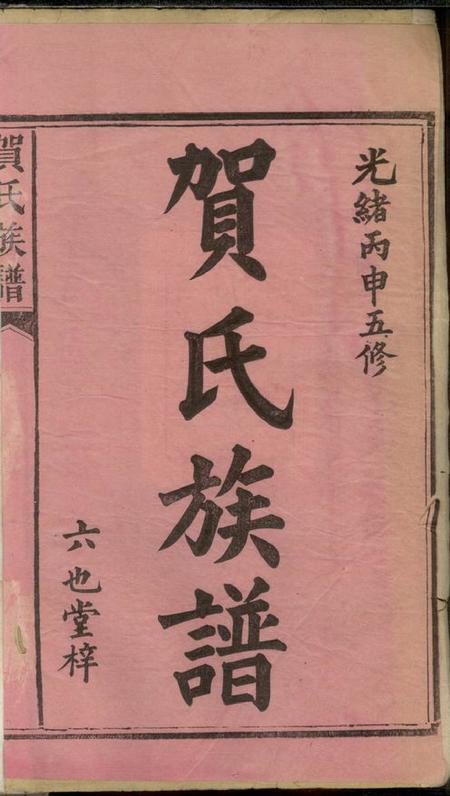 光緒丙申五修
賀氏族譜
六也堂梓
賀氏族譜